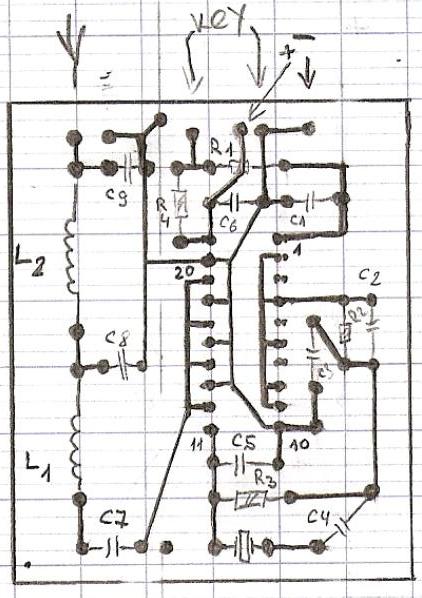 KEY
+ -
R1
C9
R4
C6
C1
1
L2
20
C2
R2
C8
C3
11
C5
10
L1
R3
C7
C4